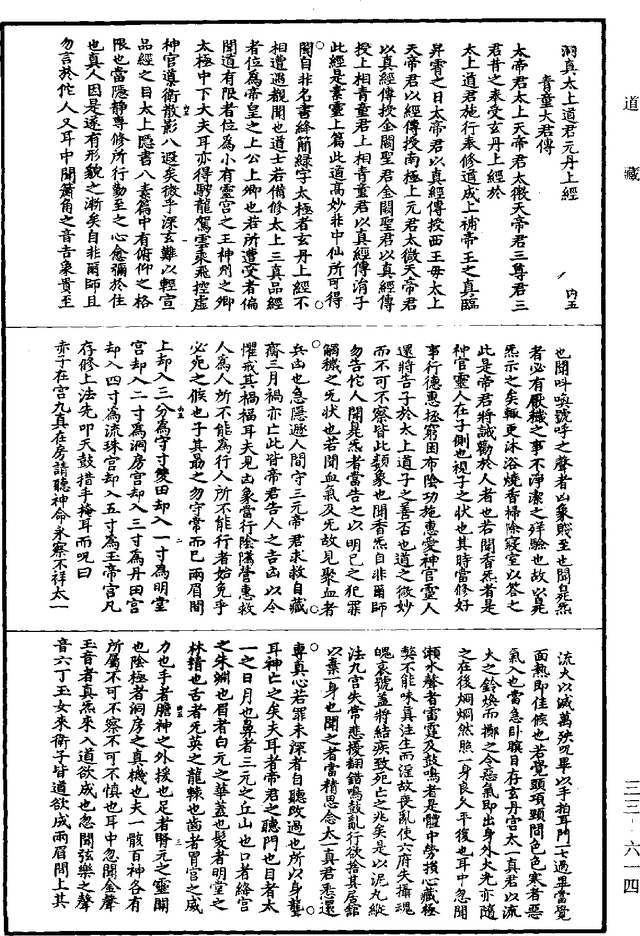 道藏
三三‐六一四
洞真太上道君元丹上經
內五
音童大君傳
太帝君太上天帝君太微天帝君三尊君三
君昔之奉受玄丹上經於
太上道君施行奉修道成上補帝王之真臨
昇霄之日太帝君以真經傳授西王母太上
天帝君以經傳授南極上元君太微天帝君
以真經傳授金闕聖君金闕聖君以真經傳
授上相青童君上相青童君以真經傳涓子
此經是素靈上篇此道高妙非中仙所可得
聞自非名書絳簡綠字太極者玄丹上經不
相遭遇覩聞也道士若備修太上三真品經
者位為帝皇之上公上卿也若所遭受者偏
聞道有限者位為小有靈宮之王神州之卿
太極中下大夫耳亦得驂龍駕雲乘飛控虛
神官導衛散影八遐矣微乎深玄難以輕宣
品經之目太上隱書八素篇中有俯仰之格
限也當隱靜專修所行動至之心愈彌於住
也真人因是遂有形貌之漸矣自非爾師且
勿言於佗人又耳中聞簫角之音吉象貴至
也聞叫喚號呼之聲者凶象賤至也聞臭炁
者必有厭穢之事不淨潔之殃驗也故以臭
炁示之矣輒更沐浴燒香掃除寢室以答之
此是帝君將誡勸於人者也若聞香炁者是
神官靈人在子側也視子之狀也其時當修好
事行德惠拯窮困布陰功施惠愛神官靈人
還將告子於太上道子之善否也道之微妙
而不可不察皆此類象也聞香炁自非爾師
勿告佗人聞臭炁者當告之以明己之犯罪
觸穢之死狀也若聞血氣及死故見聚血者
兵凶也急隱遯人間守三元帝君求救自藏
齋三月禍亦亡此皆帝君告人之吉凶以令
懼戒其禍福耳夫見凶象當行陰隲營惠救
人為人所不能為行人所不能行者始免乎
必死之候也子其勗之勿守常而已兩眉間
上却入三分為守寸雙田却入一寸為明堂
宮却入二寸為洞房宮却入三寸為丹田宮
却入四寸為流珠宮却入五寸為玉帝宮凡
存修上法先叩天鼓措手掩耳而呪曰
赤子在宮九真在房請聽神命永察不祥太一
流火以滅萬殃呪畢以手拍耳門二七過畢當覺
面熱即佳候也若覺頭項頸間色色寒者惡
氣入也當急卧瞑目存玄丹宮太一真君以流
火之鈴煥而擲之令惡氣即出身外火光亦隨
之在後烱烱然照一身良久平復也耳中忽聞
瀨水聲者雷霆及鼓鳴者是體中勞損心藏極
弊不能味真注生而淫故喪亂使六府失攝魂
魄哀號蓋將結疾致死亡之兆矣是以泥丸縱
法九宮失常悲擾翻錯鳴鼓亂行欲捨其居館
以棄一身也聞之者當精思念太一真君悉還
專真心若罪未深者自聽改過也所以身聾
耳神亡之矣夫耳者帝君之聽門也目者太
一之日月也鼻者三元之丘山也口者絳宮
之朱淵也眉者白元之華蓋也髮者明堂之
林精也舌者无英之龍轅也齒者胃宮之威
力也手者膽神之外援也足者腎元之靈關
也陰極者洞房之真機也夫一骸百神各有
所屬不可不察不可不慎也耳中忽聞金聲
玉音者真炁來入道欲成也忽聞弦樂之聲
音六丁玉女來衛子皆道欲成兩眉間上其